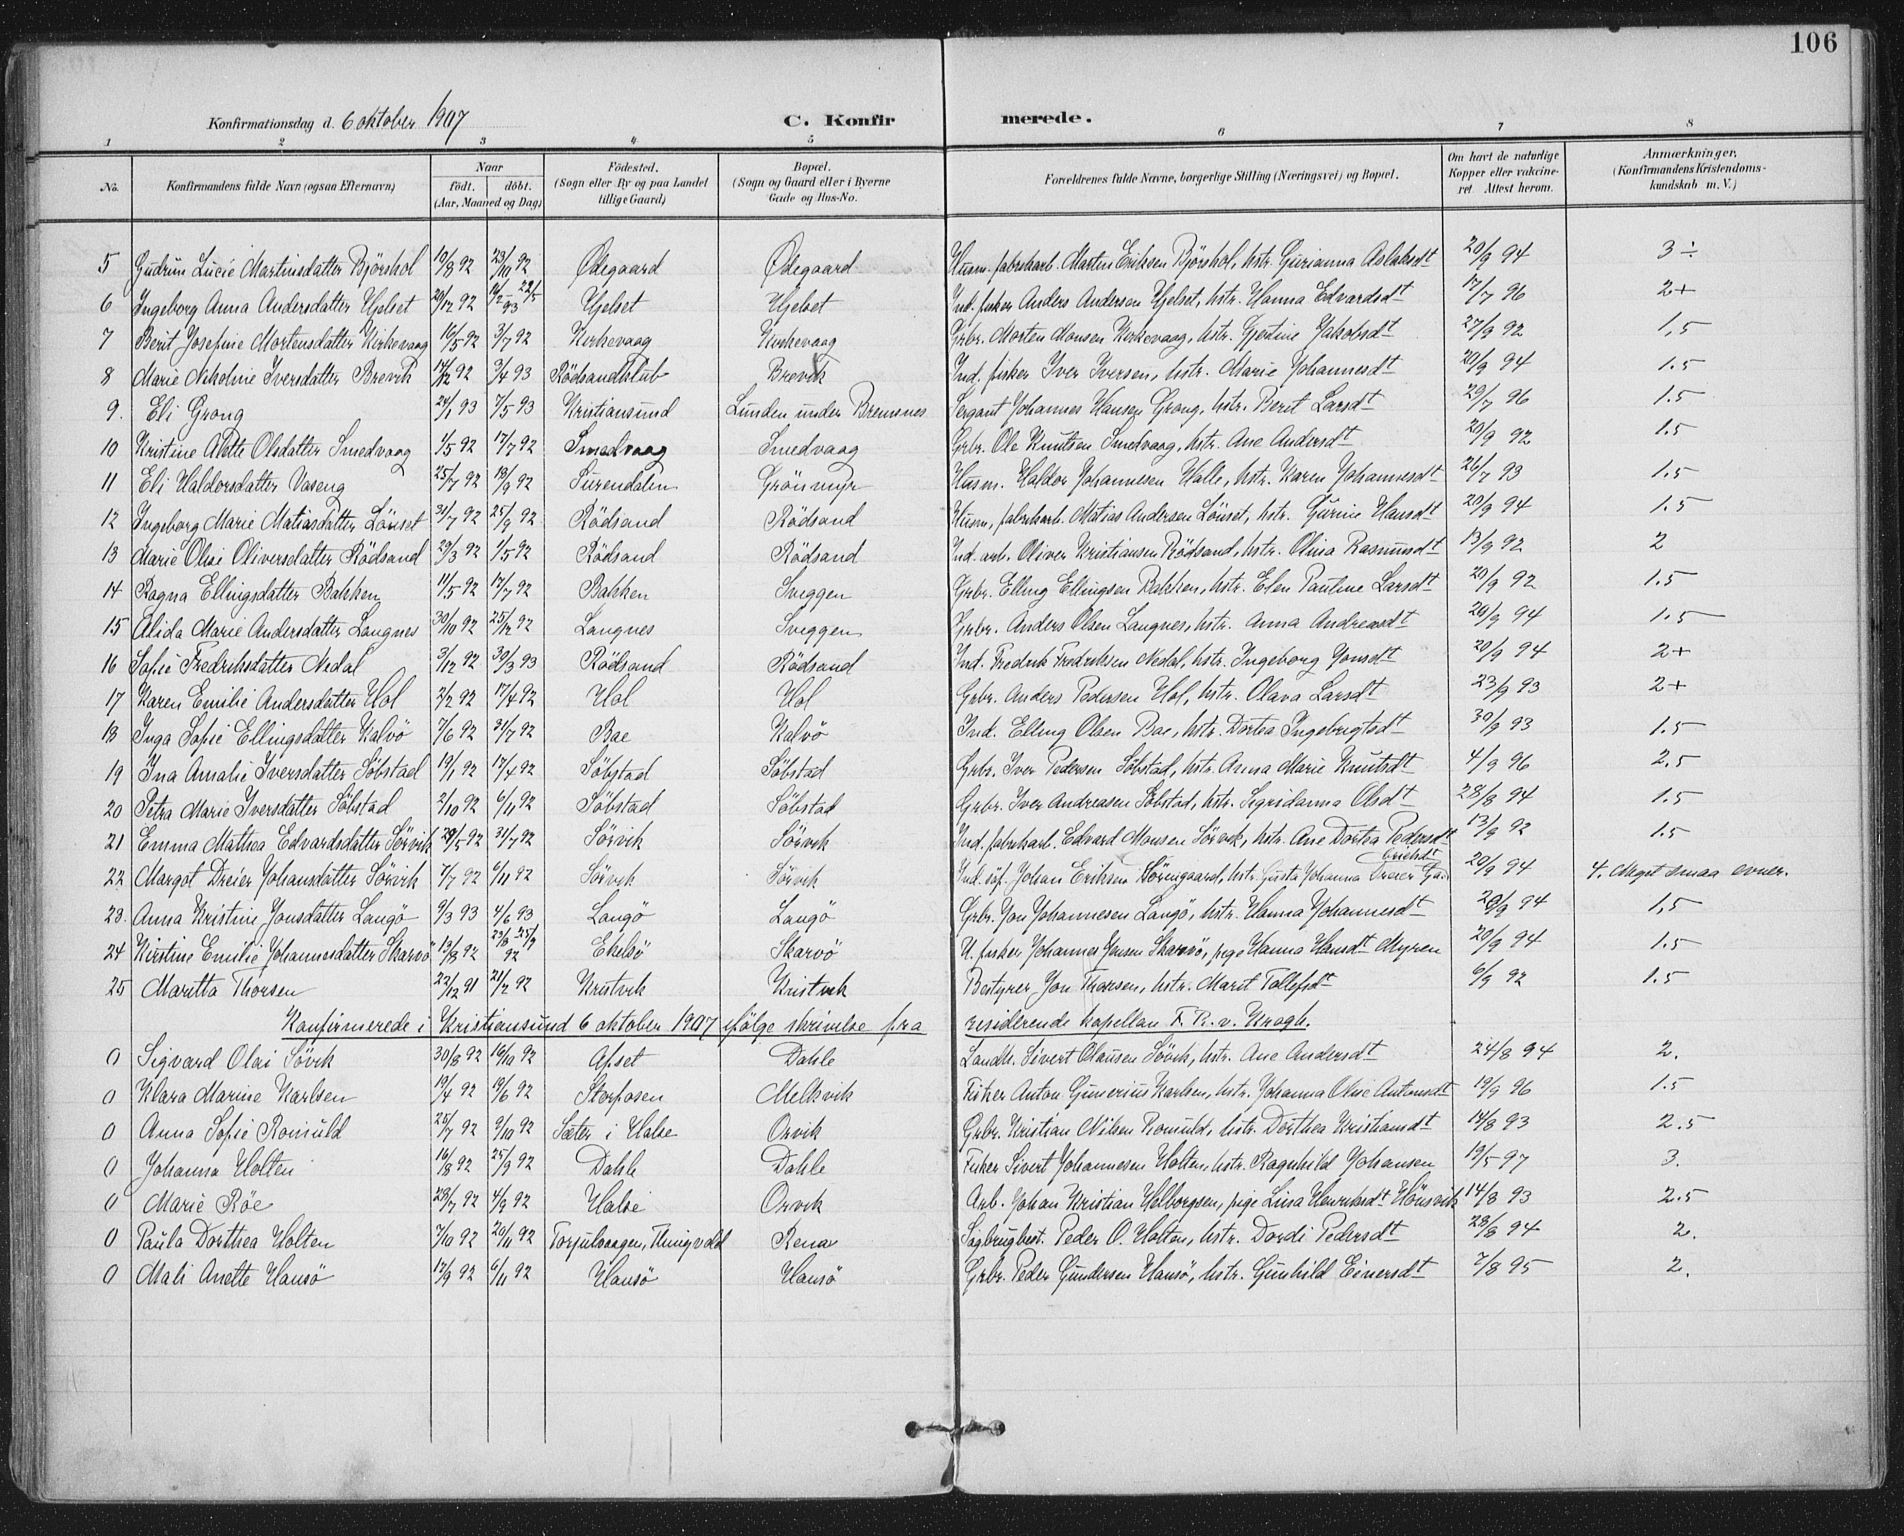 106
Konfirmationsdag d. 6 oktober 1907 C. Konfirmerede.
1 2 3 4 5 6 7 8
No. Konfirmandens fulde Navn (ogsaa Efternavn) Naar født. døbt. (Aar, Maaned og Dag) Fødested. (Sogn eller By og paa Landet tillige Gaard) Bopæl. (Sogn og Gaard eller i Byerne Gade og Hus-No. Forældrenes fulde Navne, borgerlige Stilling (Næringsvei) og Bopæl. Om havt de naturlige Kopper eller vakcineret Attest herom. Anmærkninger. (Konfirmandens Kristendomskundskab m. V.)
5 Gudrun Lucie Martinsdatter Bjørshol 10/8 92 23/10 92 Ødegaard Ødegaard Husm. fabrikarb. Martin Eriksen Bjørshol, hstr. Gurianna Aslaksdt 20/9 94 3÷
6 Ingeborg Anna Andersdatter Hjelset 20/12 92 Hjelset Hjelset Ind. fisker Anders Andersen Hjelset, hstr. Hanna Edvardsdt 17/7 96 2+
7 Berit Josefine Mortensdatter Kirkevaag 16/5 92 3/7 92 Kirkevaag Kirkevaag Grbr. Morten Monsen Kirkevaag, hstr. Gjertine Jakobsdt 27/9 92 1,5
8 Marie Nikoline Iversdatter Brevik 14/12 92 3/4 93 Rødsandklub Brevik Ind. fisker Iver Iversen, hstr. Marie Johannesdt 20/9 94 1.5
9. Eli Grong 24/1 93 7/5 93 Kristiansund Lunden under Bremsnes Sergant Johannes Hansen Grong, hstr. Beret Larsdt 29/7 96 1.5
10 Kristine Anette Olsdatter Smedvaag 1/5 92 17/7 92 Smedvaag Smedvaag Grbr. Ole Knutsen Smedvaag, hstr. Ane Andersdt 20/9 92 1.5
11 Eli Haldorsdatter Vaseng 25/7 92 18/9 92 Surendalen Grönmyr Husm. Haldor Johannesen Halle, hstr. Karen Johannesdt 26/7 93 1.5
12 Ingeborg Marie Matiasdatter Lönset 31/7 92 25/9 92 Rödsand Rödsand Husm, fabrikarb. Matias Andersen Lönset, hstr. Gurine Hansdt 20/9 94 1.5
13 Marie Olise Oliversdatter Rödsand 29/3 92 1/5 92 Rödsand Rödsand Ind. arb. Oliver Kristiansen Rödsand, hstr. Olina Rasmusdt 13/9 92 2
14 Ragna Ellingsdatter Bakken 11/5 92 17/7 92 Bakken Sveggen Grbr. Elling Ellingsen Bakken, hstr. Elen Pauline Larsdt 20/9 92 1.5
15 Alida Marie Andersdatter Langnes 30/10 92 25/12 92 Langnes Sveggen Grbr. Anders Olsen Langnes, hstr. Anna Andreasdt 20/9 94 1.5
16 Sofie Fredriksdatter Nedal 3/12 92 30/3 93 Rödsand Rödsand Ind. Fredrik Fredriksen Nedal, hstr. Ingeborg Jonsdt 20/9 94 2+
17 Karen Emilie Andersdatter Hol 2/2 92 17/4 92 Hol Hol Grbr. Anders Pedersen Hol, hstr. Olava Larsdt 23/9 93 2+
18 Inga Sofie Ellingsdatter Kalvö 7/6 92 31/7 92 Bae Kalvö Ind. Elling Olsen Bae, hstr. Dortea Ingebrigtsdt 30/9 93 1.5
19 Ina Amalie Iversdatter Söbstad 19/1 92 17/4 92 Söbstad Söbstad Grbr. Iver Pedersen Söbstad, hstr. Anna Marie Knutsdt 4/9 96 2.5
20 Petra Marie Iversdatter Söbstad 2/10 92 6/11 92 Söbstad Söbstad Grbr. Iver Andreasen Söbstad, hstr. Sigridanna Olsdt 28/8 94 1.5
21 Emma Mathea Edvardsdatter Sörvik 29/5 92 31/7 92 Sörvik Sörvik Ind. fabrikarb. Edvard Monsen Sörvik, hstr. Ane Dortea Pedersdt 13/9 92 1.5
22 Margot Dreier Johansdatter Sörvik 7/7 92 6/11 92 Sörvik Sörvik Ind. Johan Eriksen Sörengaard, hstr. Gusta Johanna Dreier 20/9 94 4. Meget smaa evner.
23. Anna Kristine Jonsdatter Langö 9/3 93 4/6 93 Langö Langö Grbr. Jon Johannesen Langö, hstr. Hanna Johannesdt 20/9 94 1,5
24 Kirstine Emilie Johannesdatter Skarvö 13/8 92 Ekelsö Skarvö U. fisker Johannes Jensen Skarvö, pige Hanna Hansdt Myren 20/9 94 1.5
25 Maritta Thorsen 22/12 91 21/2 92 Kristvik Kristvik Bestyrer Jon Thorsen, hstr. Marit Tollefsdt 6/9 92 1.5
Konfirmerede i Kristiansund 6 oktober 1907 ifölge skrivelse fra residerende kapellan F. R. v. Krogh.
0 Sigvard Olai Sövik 30/8 92 16/10 92 Afset Dahle Landh. Sivert Olausen Sövik, hstr. Ane Andersdt 24/8 94 2.
0 Klara Marine Karlsen 19/4 92 19/6 92 Storfosen Melkvik Fisker Anton Gunerius Karlsen, hstr. Johanna Oline Antonsdt 19/9 96 1.5
0 Anna Sofie Romuld 25/7 92 9/10 92 Sæter i Halse Orvik Grbr. Kristian Nilsen Romuld, hstr. Dorthea Kristiansdt 14/8 93 2.5
0 Johanna Holten 16/8 92 25/9 92 Dahle Dahle Fisker Sivert Johannesen Holten, hstr. Ragnhild Johansen 19/5 97 3.
0 Marie Röe 23/7 92 4/9 92 Halse Orvik Arb. Johan Kristian Helborgsen, pige Lina Henriksdt Hönsvik 14/8 93 2.5
0 Paula Dorthea Holten 7/10 92 20/11 92 Torjulvaagen, Thingvold Rena Sagbrugbest. Peder O. Holten, hstr. Dordi Pedersdt 23/8 94 2.
0 Mali Anette Hansö 17/9 92 6/11 92 Hansö Hansö Grbr. Peder Gundersen Hansö, hstr. Gunhild Einersdt 7/8 95 2.